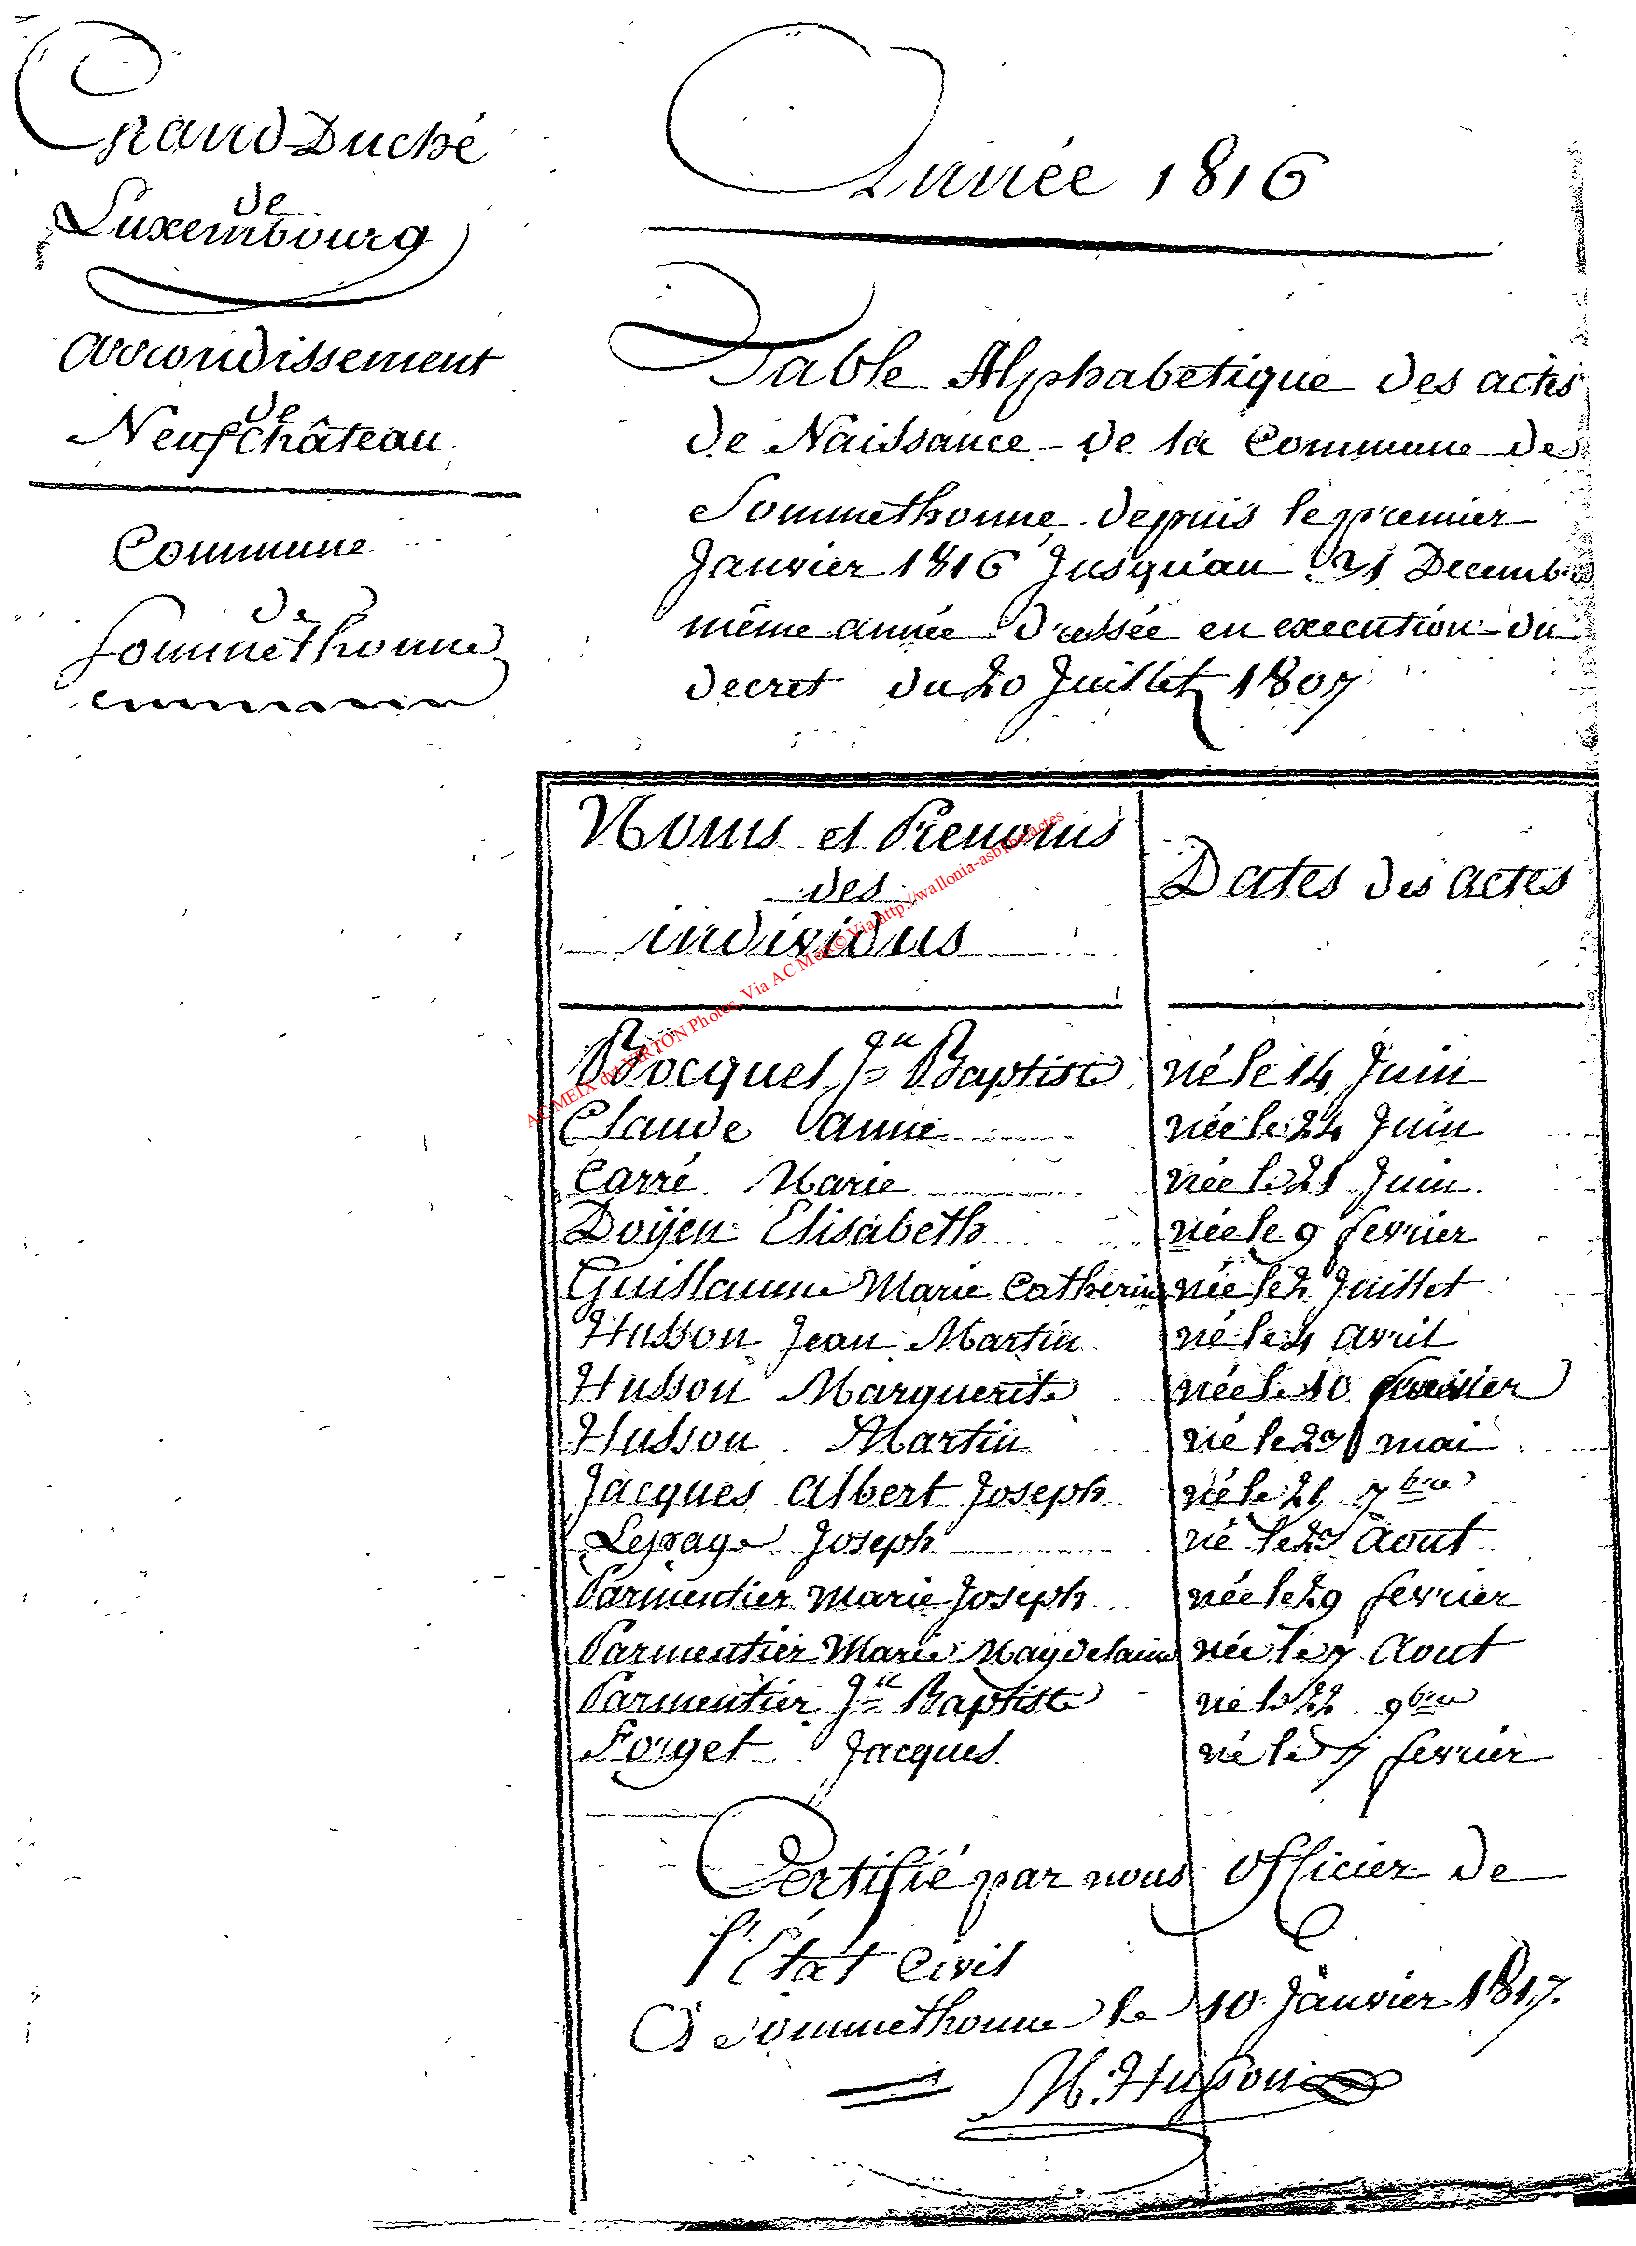 Grand Duché
de
Luxembourg
arrondissement
de
Neufchâteau
Commune
de
Sommethonne
Année 1816
Table Alphabetique des actes
de Naissance de la Commune de
Sommethonne, depuis le premier
Janvier 1816 Jusqu'au 31 Decembre
même année Dressée en execution du
decret du 20 Juillet 1807
Noms et Prenoms
des
individus
Dates des actes
AC MEIX dv VIRTON Photos, Via AC Meix© Via http://wallonia-asbl.be/actes
Bocquet Jn Baptiste né le 14 Juin
Claude anne née le 24 Juin
Carré Marie née le Juin
Doÿen Elisabeth née le 9 fevrier
Guillaume Marie Catherine née le 2 Juillet
Husson Jean Martin né le 4 avril
Husson Marguerite née le 10
Husson Martin né le mai
Jacques albert Joseph né le 7bre
Lepage Joseph né le Aout
Parmentier Marie Joseph née le 29 fevrier
Parmentier Marie Magdelaine née le 7 Aout
Parmentier Jn Baptiste né le 22 9bre
Forget Jacques né le 7 fevrier
Certifié par nous officier de
l'Etat Civil
A Sommethonne le 10 Janvier 1817.
M. Husson